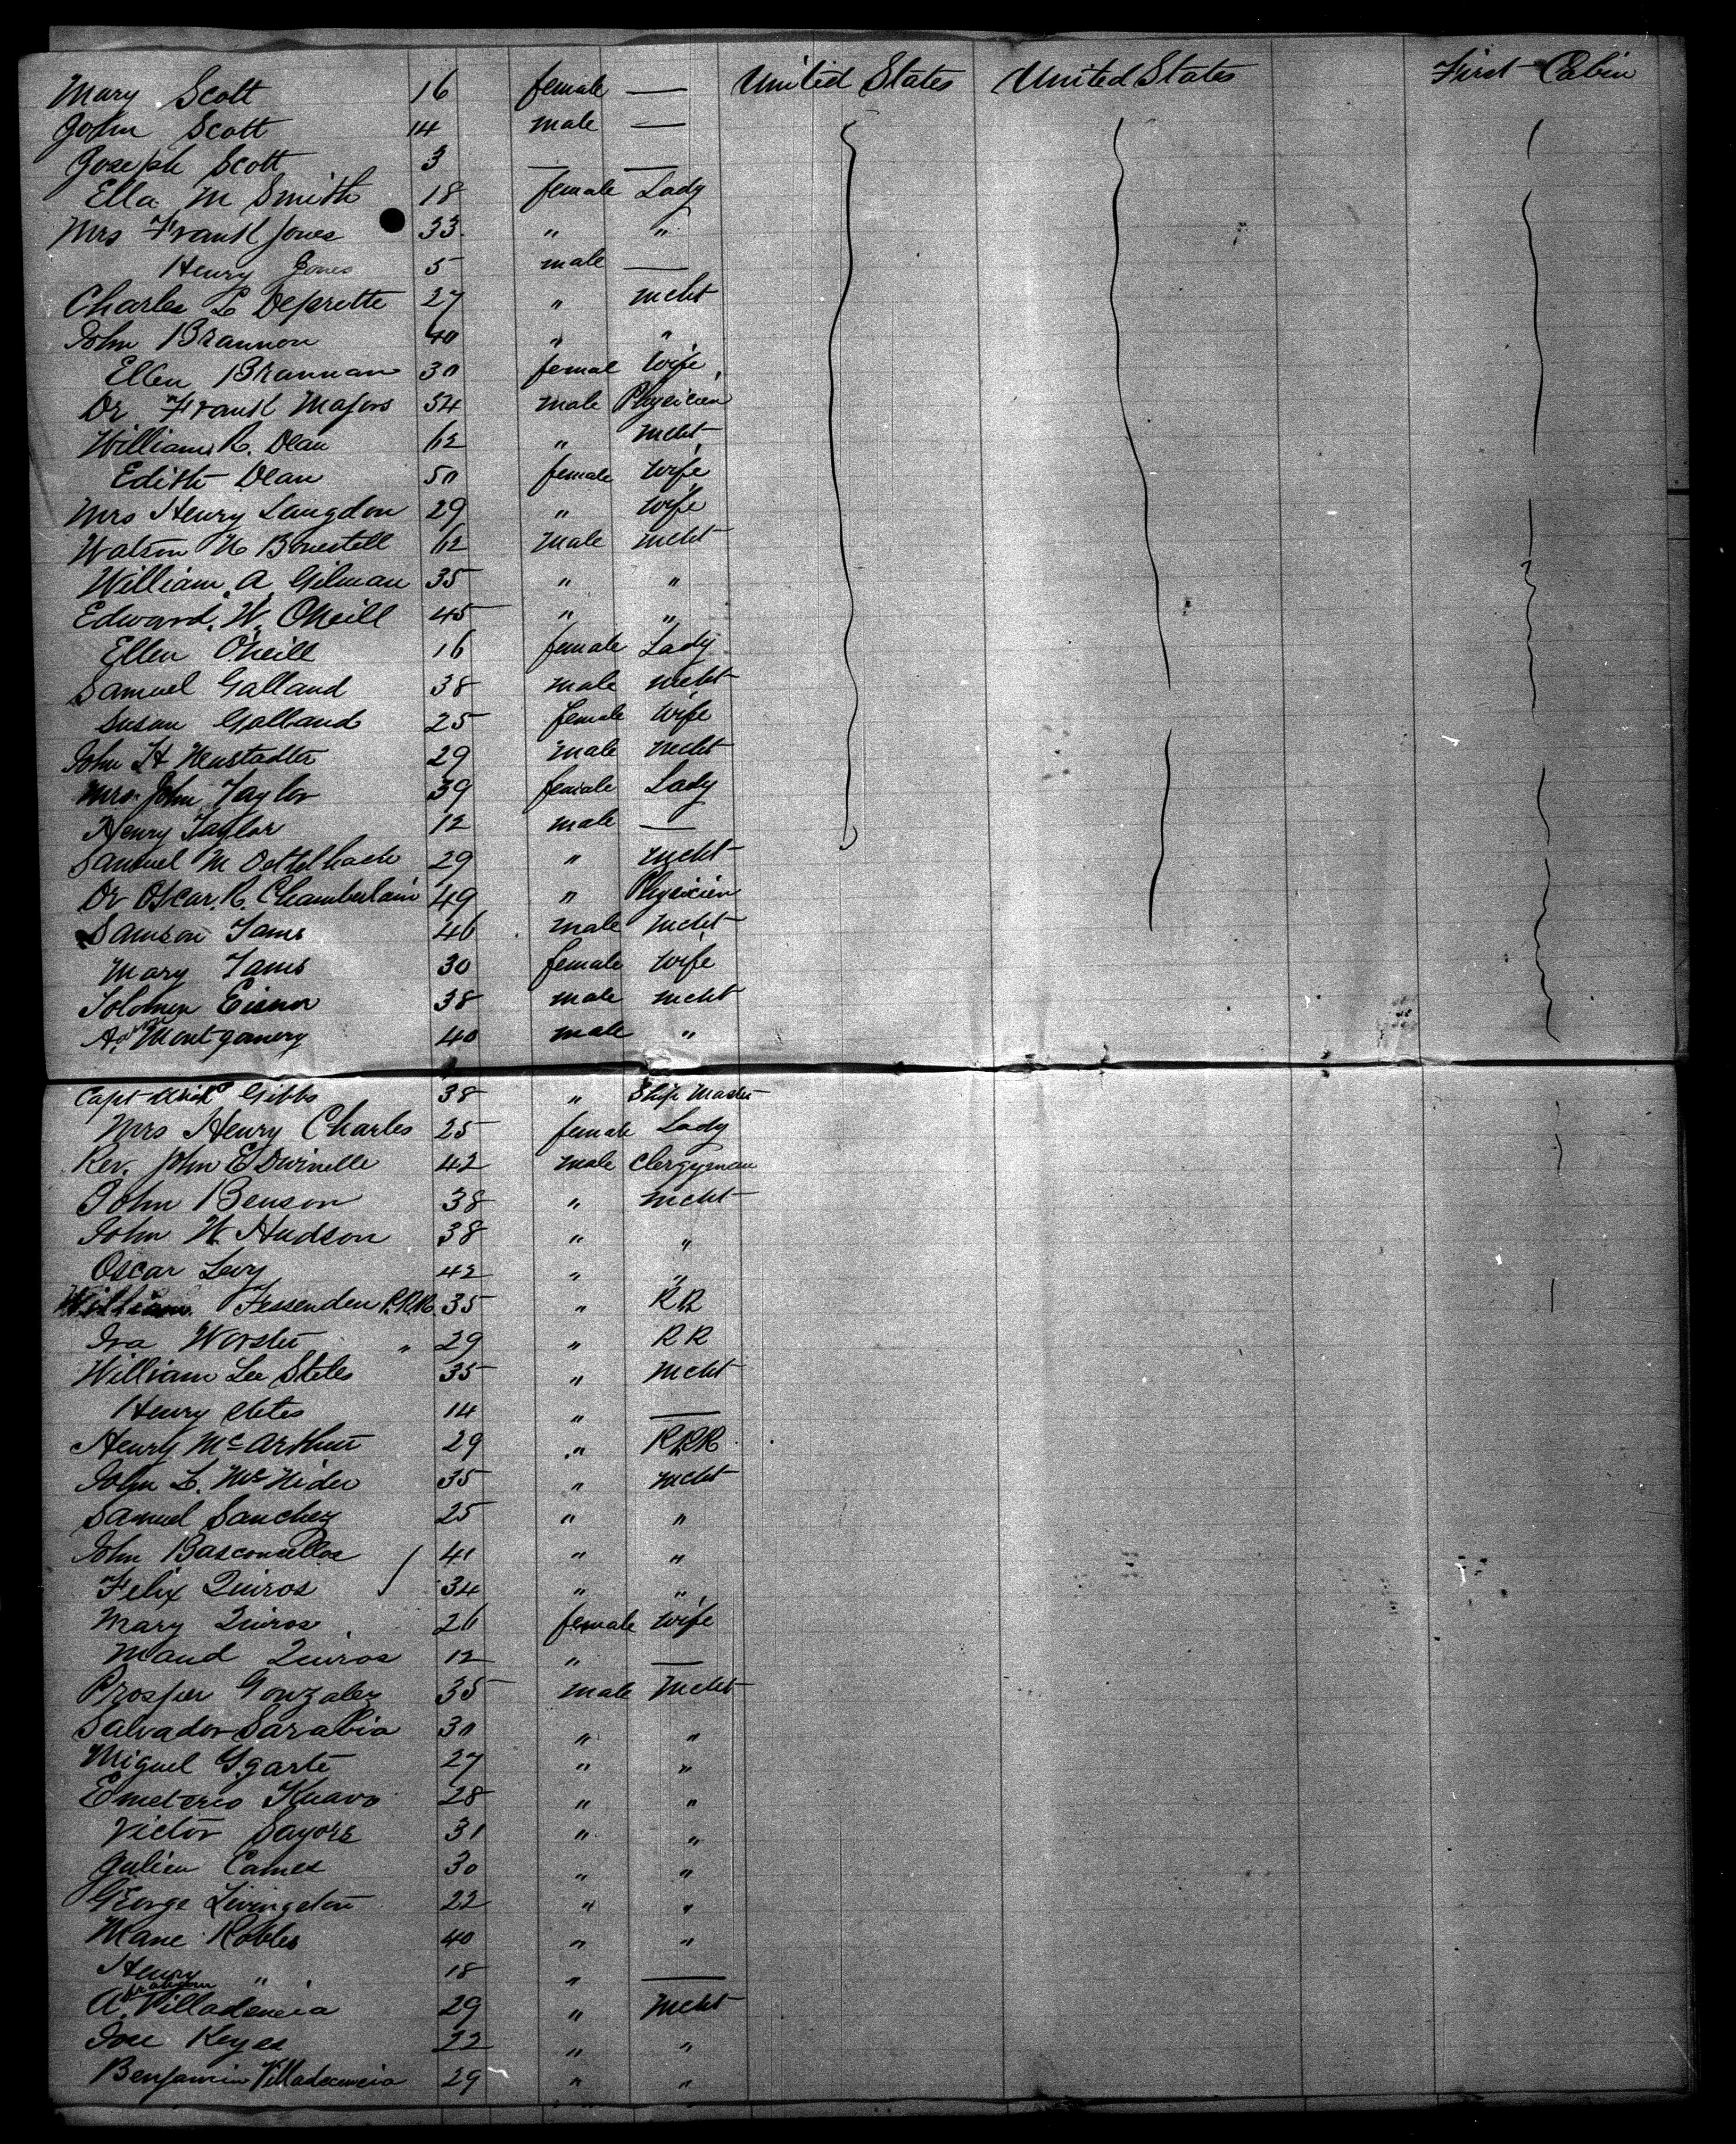 Mary Scott 16 female — United States United States First Cabin
John Scott 14 male —
Joseph Scott 3 — —
Ella M Smith 18 female Lady
Mrs Frank Jones 33 " "
Henry Jones 5 male —
Charles L Deprette 27 " mcht
John Brannon 40 " "
Ellen Brannan 30 femal wife
Dr Frank Majors 54 male Physicien
William R. Dean 62 " mcht
Edith Dean 50 female wife
Mrs Henry Langdon 29 " wife
Watson N Bonestell 62 male mcht
William A Gilman 35 " "
Edward. W. ONeill 45 " "
Ellen O'Neill 16 female Lady
Samuel Galland 38 male mcht
Susan Galland 25 female wife
John H Neustadter 29 male mcht
Mrs John Taylor 39 female Lady
Henry Taylor 12 male —
Samuel M 29 " mcht
Dr Oscar. R. Chamberlain 49 " Physicien
Samson Tams 46 male mcht
Mary Tams 30 female wife
Solomen 38 male mcht
Montgomery 40 male "
Capt Gibbs 38 " Ship Master
Mrs Henry Charles 25 female Lady
Rev. John E Dwinelle 42 male Clergyman
John Benson 38 " mcht
John W. Hudson 38 " "
Oscar Levy 42 " "
William Fessenden P.R.R. 35 " RR
Ira Worster " 29 " RR
William Lee Stiles 35 " mcht
Henry 14 " —
Henry McArthur 29 " RRR
John L. McNider 35 " mcht
Samuel Sanchez 25 " "
John Basconsellos 41 " "
Felix Quiros 34 " "
Mary Quiros 26 female wife
Maud Quiros 12 " —
Prosper Gonzalez 35 male mcht
Salvador Sarabia 30 " "
Miguel Ygarte 27 " "
Emeterio 28 " "
Victor 31 " "
Julien Eames 30 " "
George Livingston 22 " "
Robles 40 " "
Henry " 18 " —
Villadencia 29 " mcht
Jose Reyes 22 " "
Benjamin 29 " "